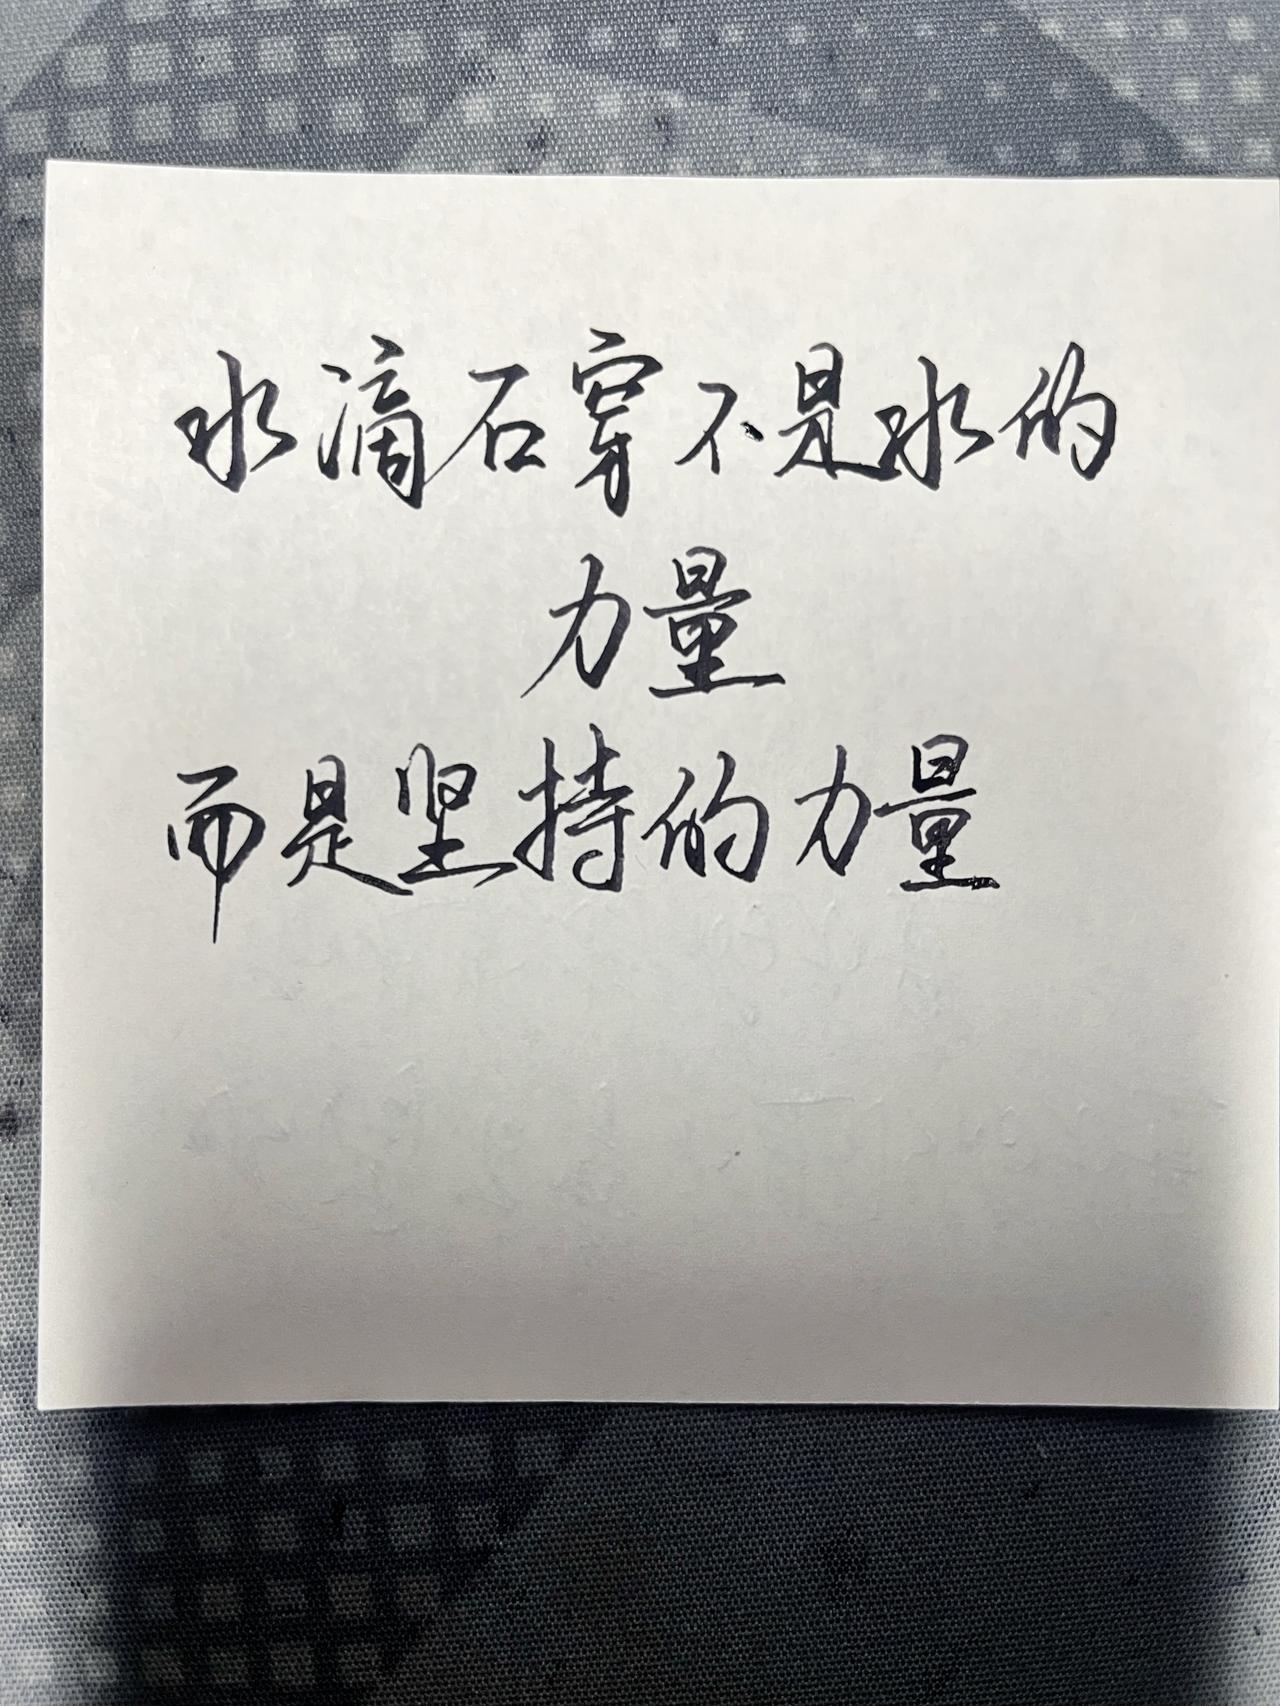 水滴石穿不是水的
力量
而是坚持的力量